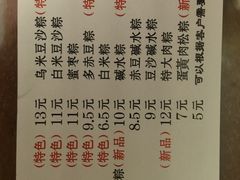 乌米豆沙粽 13元 (特色)
白米豆沙粽 11元 (特色)
蜜枣粽 11元 (特色)
多赤豆粽 9.5元 (特色)
白米粽 6.5元 (特色)
碱水粽 10元 (新品)
赤豆碱水粽 8.5元
豆沙碱水粽 9元
特大肉粽 12元 (新品)
蛋黄肉松粽 7元
5元
可以根据客户需要